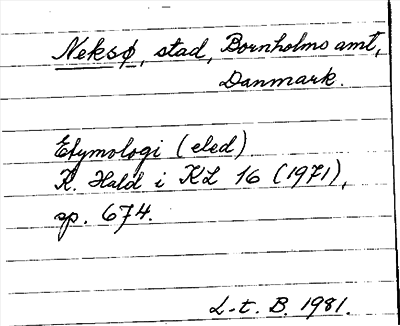 Neksø, stad, Bornholms amt,
Danmark.
Etymologi (eled)
K. Hald i KL 16 (1971),
sp. 674.
L-t. B. 1981.